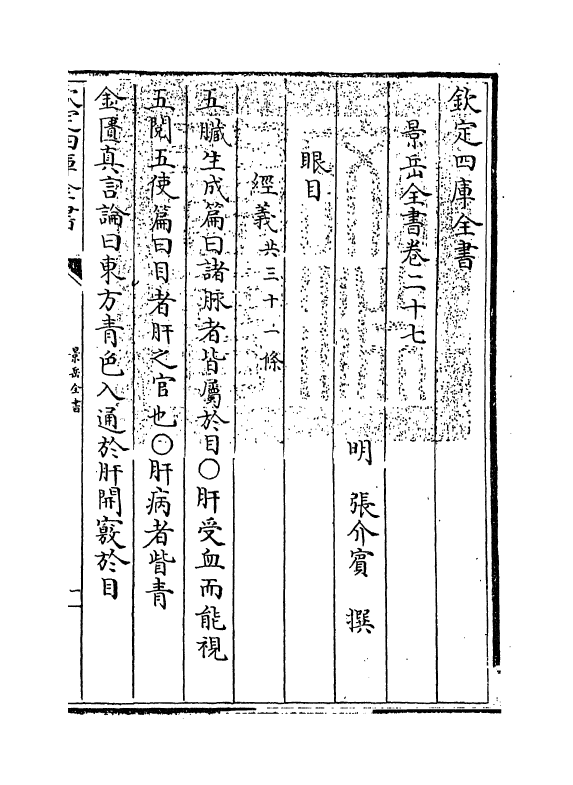 欽定四庫全書
景岳全書卷二十七
明 張介賓 撰
眼目
經義共三十一條
五臟生成篇曰諸脉者皆屬於目〇肝受血而能視
五閱五使篇曰目者肝之官也〇肝病者眥青
金匱真言論曰東方青色入通於肝開竅於目
景岳全書